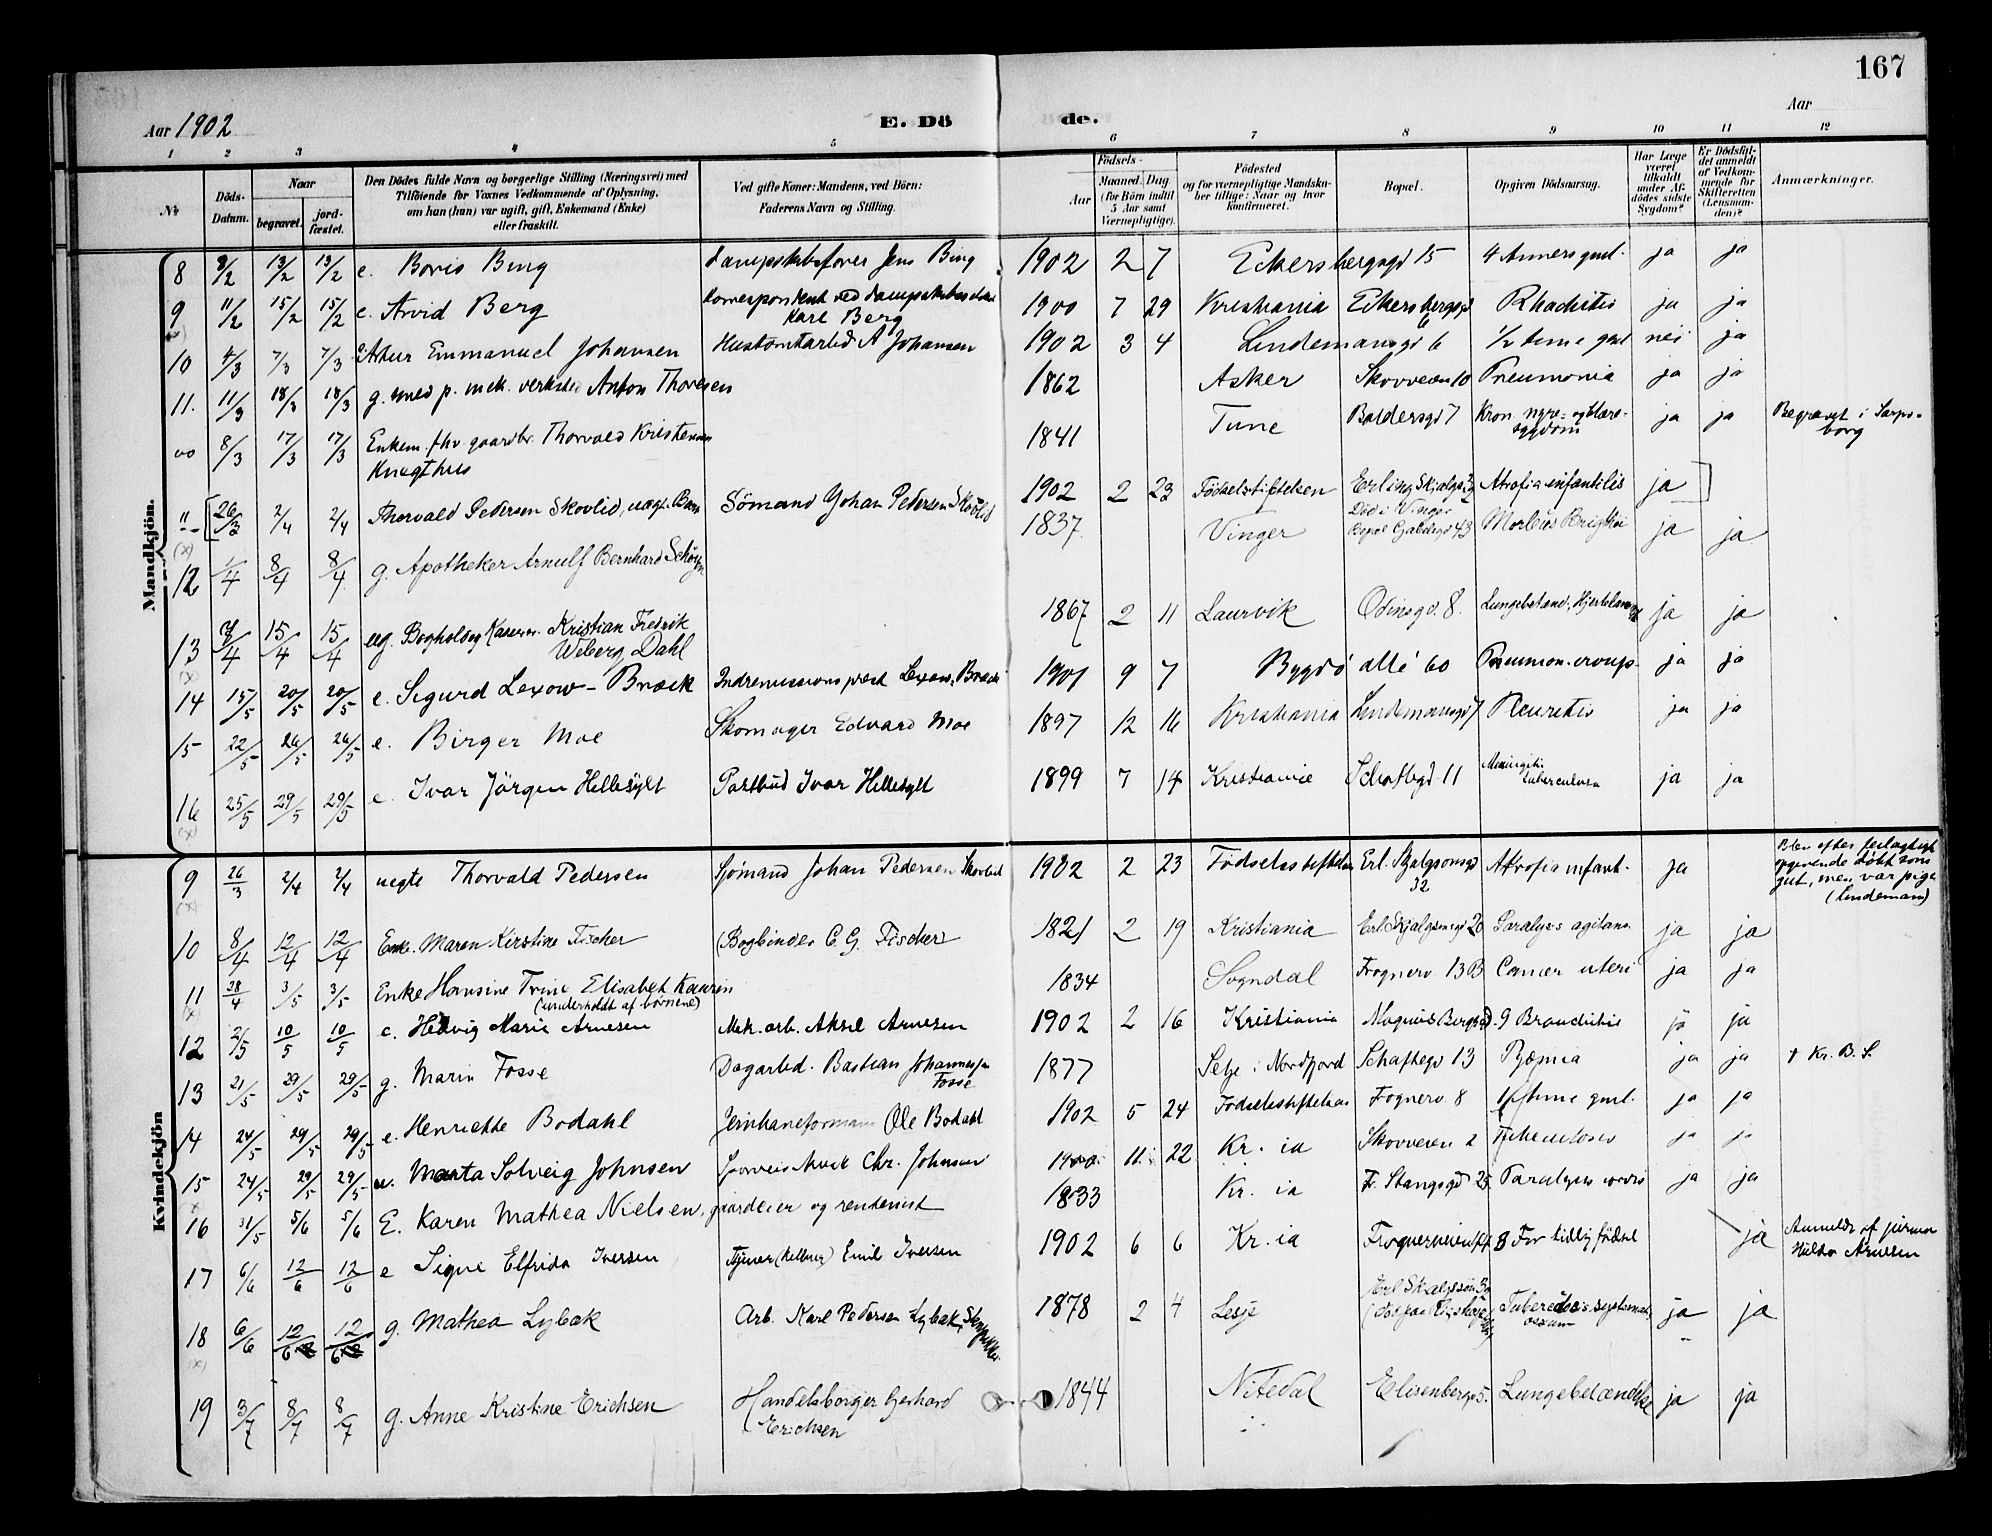 167
Aar 1902
E. Dö
de.
Aar
1 2 3 4 5 6 7 8 9 10 11 12
№
Döds-Datum.
Naar
begravet.
jord-fæstet.
Den Dödes fulde Navn og borgerlige Stilling (Næringsvei) med
Tilföiende for Voxnes Vedkommende af Oplysning,
om han (hun) var ugift, gift, Enkemand (Enke)
eller fraskilt.
Ved gifte Koner: Mandens, ved Börn:
Faderens Navn og Stilling.
Födsels-
Aar
Maaned. Dag
(for Börn indtil
5 Aar samt
Værnepligtige).
Födested
og for værnepligtige Mandska-
ber tillige: Naar og hvor
konfirmeret.
Bopæl.
Opgiven Dödsaarsag.
Har Læge
været
tilkaldt
under Af-
dödes sidste
Sygdom?
Er Dödsfal-
det anmeldt
af Vedkom-
mende for
Skifteretten
(Lensman-
den)?
Anmærkninger.
Mandkjön.
8 9/2 13/2 13/2 e. Boris Bing dampskibsfører Jens Bing 1902 2 7 Eckersbergsgd 15 ja ja
9 11/2 15/2 15/2 e. Arvid Berg Korrespondent ved Karl Berg 1900 7 29 Kristiania Eckersbergsgd 6 Rhachitis ja ja
10 4/3 7/3 7/3 Emmanuel Johansen A Johansen 1902 3 4 Lindemansgd 6 1/2 time gml nei ja
11. 11/3 18/3 18/3 g. med p. mek. verksted Anton Thoresen 1862 Asker Skovveien 10 Pneumonia ja ja
8/3 17/3 17/3 Enkem. fhv. gaardbr. Thorvald Kristensen 1841 Tune Baldersgd 7 Kron. nyre- og blære-sygdom ja ja Begravet i Sarps-borg
Knagthus
26/3 2/4 2/4 Thorvald Pedersen Skovlid, uægt. Barn Sømand Johan Pedersen Skovlid 1902 2 23 Födselsstiftelsen Erling Skjalgs Atrofia infantilis ja
12 1/4 8/4 8/4 g. Apotheker Arnulf Bernhard 1837 Vinger Død i Vinger Bopæl 43 Morbus Brightii ja ja
13 4 15/4 15/4 ug. Bogholder Kristian Fredrik Weberg Dahl 1867 2 11 Laurvik Odinsgd. 8. ja ja
14 15/5 20/5 20/5 e. Sigurd Lexow-Bræck Indremissionsprest Lexow-Bræck 1901 9 7 Bygdö allé 60 Pneumon. croup. ja ja
15 22/5 26/5 26/5 e. Birger Moe Skomager Edvard Moe 1897 12 16 Kristiania Lindemansgd 7 Pleuritis ja ja
16 25/5 29/5 29/5 e. Ivar Jörgen Hellesylt Postbud Ivar Hellesylt 1899 7 14 Kristiania Schaftegd 11 Meningitis tuberculosa ja ja
Kvindekjön
9 26/3 2/4 2/4 uegte Thorvald Pedersen Sjømand Johan Pedersen Skovlid 1902 2 23 Födselsstiftelsen Erl. Skjalgsonsgd 32 Attrofia infant. ja Blev efter feilagtigt
opgivende döbt som
gut, men var pige
(Lindeman)
10 8/4 12/4 12/4 Enke. Maren Kirstine Fischer (Bogbinder C. G. Fischer) 1821 2 19 Kristiania Erl. Skjalgsonsgd 20 Paralysis agitans. ja ja
11 28/4 3/5 3/5 Enke Hansine Trine Elisabet Kaurin 1834 Sogndal Frognerv 13B Cancer uteri ja ja
(underholdt af børnene)
12 2/5 10/5 10/5 e. Hedvig Marie Arnesen Mek. arb. Aksel Arnesen 1902 2 16 Kristiania Magnus Bergsgd. 9 Bronchitis ja ja
13 21/5 29/5 29/5 g. Marin Fosse Dagarbd. Bastian Johannesen Fosse 1877 Selje i Nordfjord Schaftegd 13 Pyæmia ja ja † Kr. B. S.
14 24/5 29/5 29/5 e. Henriette Bodahl Jernbaneformand Ole Bodahl 1902 5 24 Födselsstiftelsen Frognerv 8 time gml. ja ja
15 24/5 29/5 29/5 Marta Solveig Johnsen Chr. Johnsen 1900 11 22 Kr. ia Skovveien 2 Tuberculosis ja ja
16 31/5 5/6 5/6 E. Karen Mathea Nielsen, gaardeier og rentenist 1833 Kr. ia Fr. Stangsgd 25 Paralysis cordis ja ja
17 6/6 12/6 12/6 e Signe Elfrida Iversen Tjener (kellner) Emil Iversen 1902 6 6 Kr. ia Frognerveien For tidlig födsel ja Anmeldt af jormor
Hilda Arnesen
18 6/6 12/6 12/6 g. Mathea Lybæk Arb. Karl Pedersen Lybæk, 1878 2 4 Lesje Erl Skalgssøn ja ja
19 3/7 8/7 8/7 g. Anne Kristine Erichsen Handelsborger Gerhard Erichsen 1844 Nitedal Elisenbergv 5. Lungebetændelse ja ja